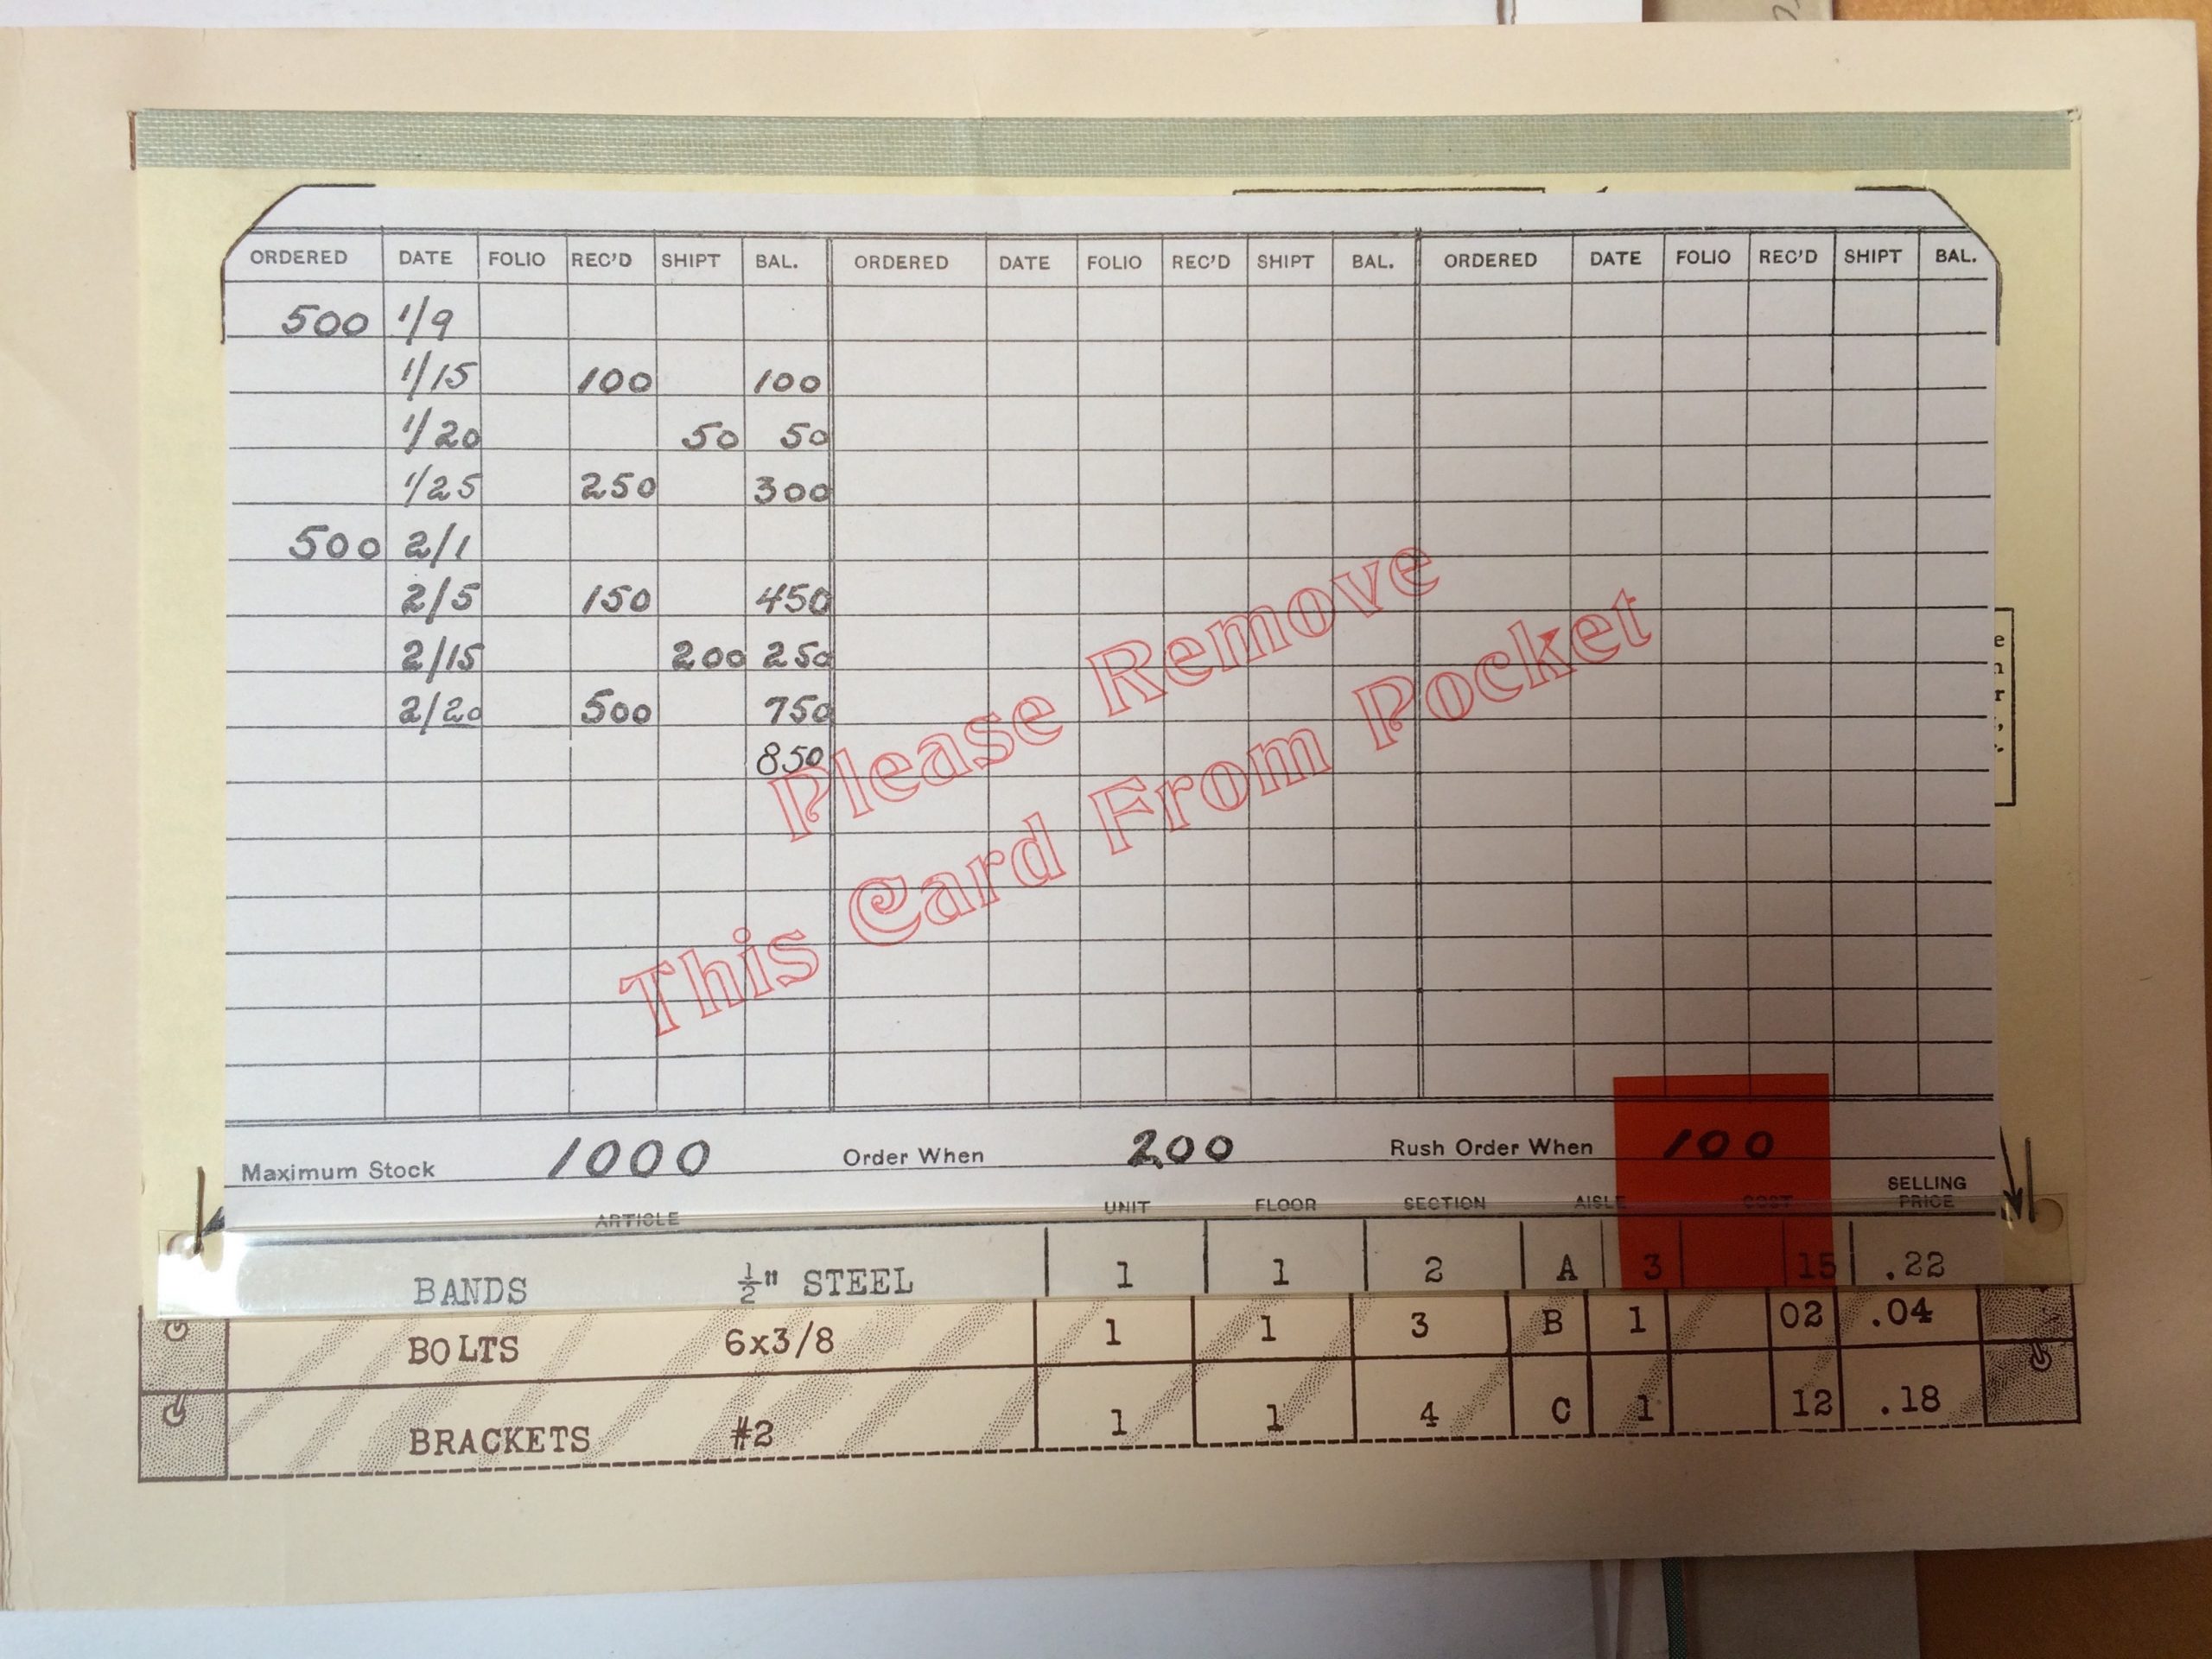 ORDERED DATE FOLIO REC'D SHIPT BAL. ORDERED DATE FOLIO REC'D SHIPT BAL. ORDERED DATE FOLIO REC'D SHIPT BAL.
500 1/9
1/15 100 100
1/20 50 50
1/25 250 300
500 2/1
2/5 150 450
2/15 200 250
2/20 500 750
850
Please Remove
This Card From Pocket
Maximum Stock 1000 Order When 200 Rush Order When 100
ARTICLE UNIT FLOOR SECTION AISLE COST SELLING PRICE
BANDS ½" STEEL 1 1 2 A 3 15 .22
BOLTS 6x3/8 1 1 3 B 1 02 .04
BRACKETS #2 1 1 4 C 1 12 .18